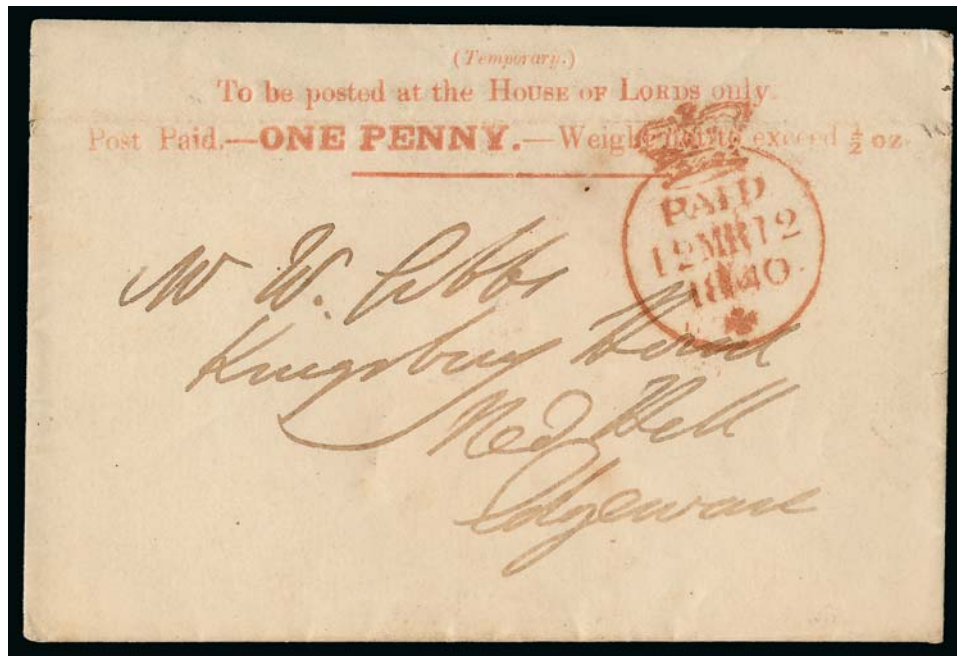 (Temporary.)
To be posted at the HOUSE OF LORDS only.
Post Paid.—ONE PENNY.—Weight not to exceed ½ oz.
PAID
12 MR 12
1840
Mr W. Gibbs
Kingsbury
Red Hill
Edgeware